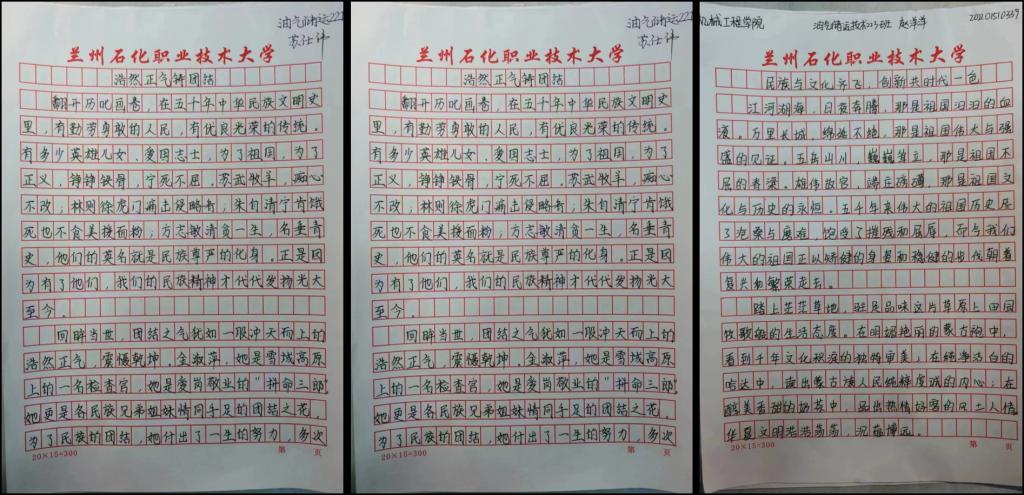 油气储运222
苏仕伟
兰州石化职业技术大学
浩然正气铸团结
翻开历史画卷，在五千年中华民族文明史
里，有勤劳勇敢的人民，有优良光荣的传统。
有多少英雄儿女、爱国志士，为了祖国，为了
正义，铮铮铁骨，宁死不屈。苏武牧羊，痴心
不改；林则徐虎门痛击侵略者；朱自清宁肯饿
死也不食美援面粉；方志敏清贫一生，名垂青
史，他们的英名就是民族尊严的化身。正是因
为有了他们，我们的民族精神才代代发扬光大
至今。
回眸当世，团结之气犹如一股冲天而上的
浩然正气，震慑乾坤。金淑萍，她是雪域高原
上的一名检查官，她是爱岗敬业的“拼命三郎”
她更是各民族兄弟姐妹情同手足的团结之花。
为了民族的团结，她付出了一生的努力，多次
20×15=300
第 页
油气储运222
苏仕伟
兰州石化职业技术大学
浩然正气铸团结
翻开历史画卷，在五千年中华民族文明史
里，有勤劳勇敢的人民，有优良光荣的传统。
有多少英雄儿女、爱国志士，为了祖国，为了
正义，铮铮铁骨，宁死不屈。苏武牧羊，痴心
不改；林则徐虎门痛击侵略者；朱自清宁肯饿
死也不食美援面粉；方志敏清贫一生，名垂青
史，他们的英名就是民族尊严的化身。正是因
为有了他们，我们的民族精神才代代发扬光大
至今。
回眸当世，团结之气犹如一股冲天而上的
浩然正气，震慑乾坤。金淑萍，她是雪域高原
上的一名检查官，她是爱岗敬业的“拼命三郎”
她更是各民族兄弟姐妹情同手足的团结之花。
为了民族的团结，她付出了一生的努力，多次
20×15=300
第 页
机械工程学院 油气储运技术223班 赵洋洋
兰州石化职业技术大学
民族与文化齐飞，创新共时代一色
江河湖海，日夜奔腾，那是祖国汩汩的血
液。万里长城，绵延不绝，那是祖国伟大与强
盛的见证。五岳山川，巍巍耸立，那是祖国不
屈的脊梁。雄伟故宫，端庄磅礴，那是祖国文
化与历史的永恒。五千年来伟大的祖国历史尽
了沧桑与磨难，饱受了摧残和屈辱，而今我们
伟大的祖国正以矫健的身姿和稳健的步伐朝着
复兴和繁荣走去。
踏上茫茫草地，驻足品味这片草原上田园
牧歌般的生活态度。在明媚艳丽的蒙古袍中，
看到千年文化积淀的独特审美，在纯净洁白的
哈达中，读出蒙古族人民纯粹虔诚的内心；在
醇美香甜的奶茶中，品出热情好客的风土人情
华夏文明浩浩荡荡，沉蕴博远。
20×15=300
第 页